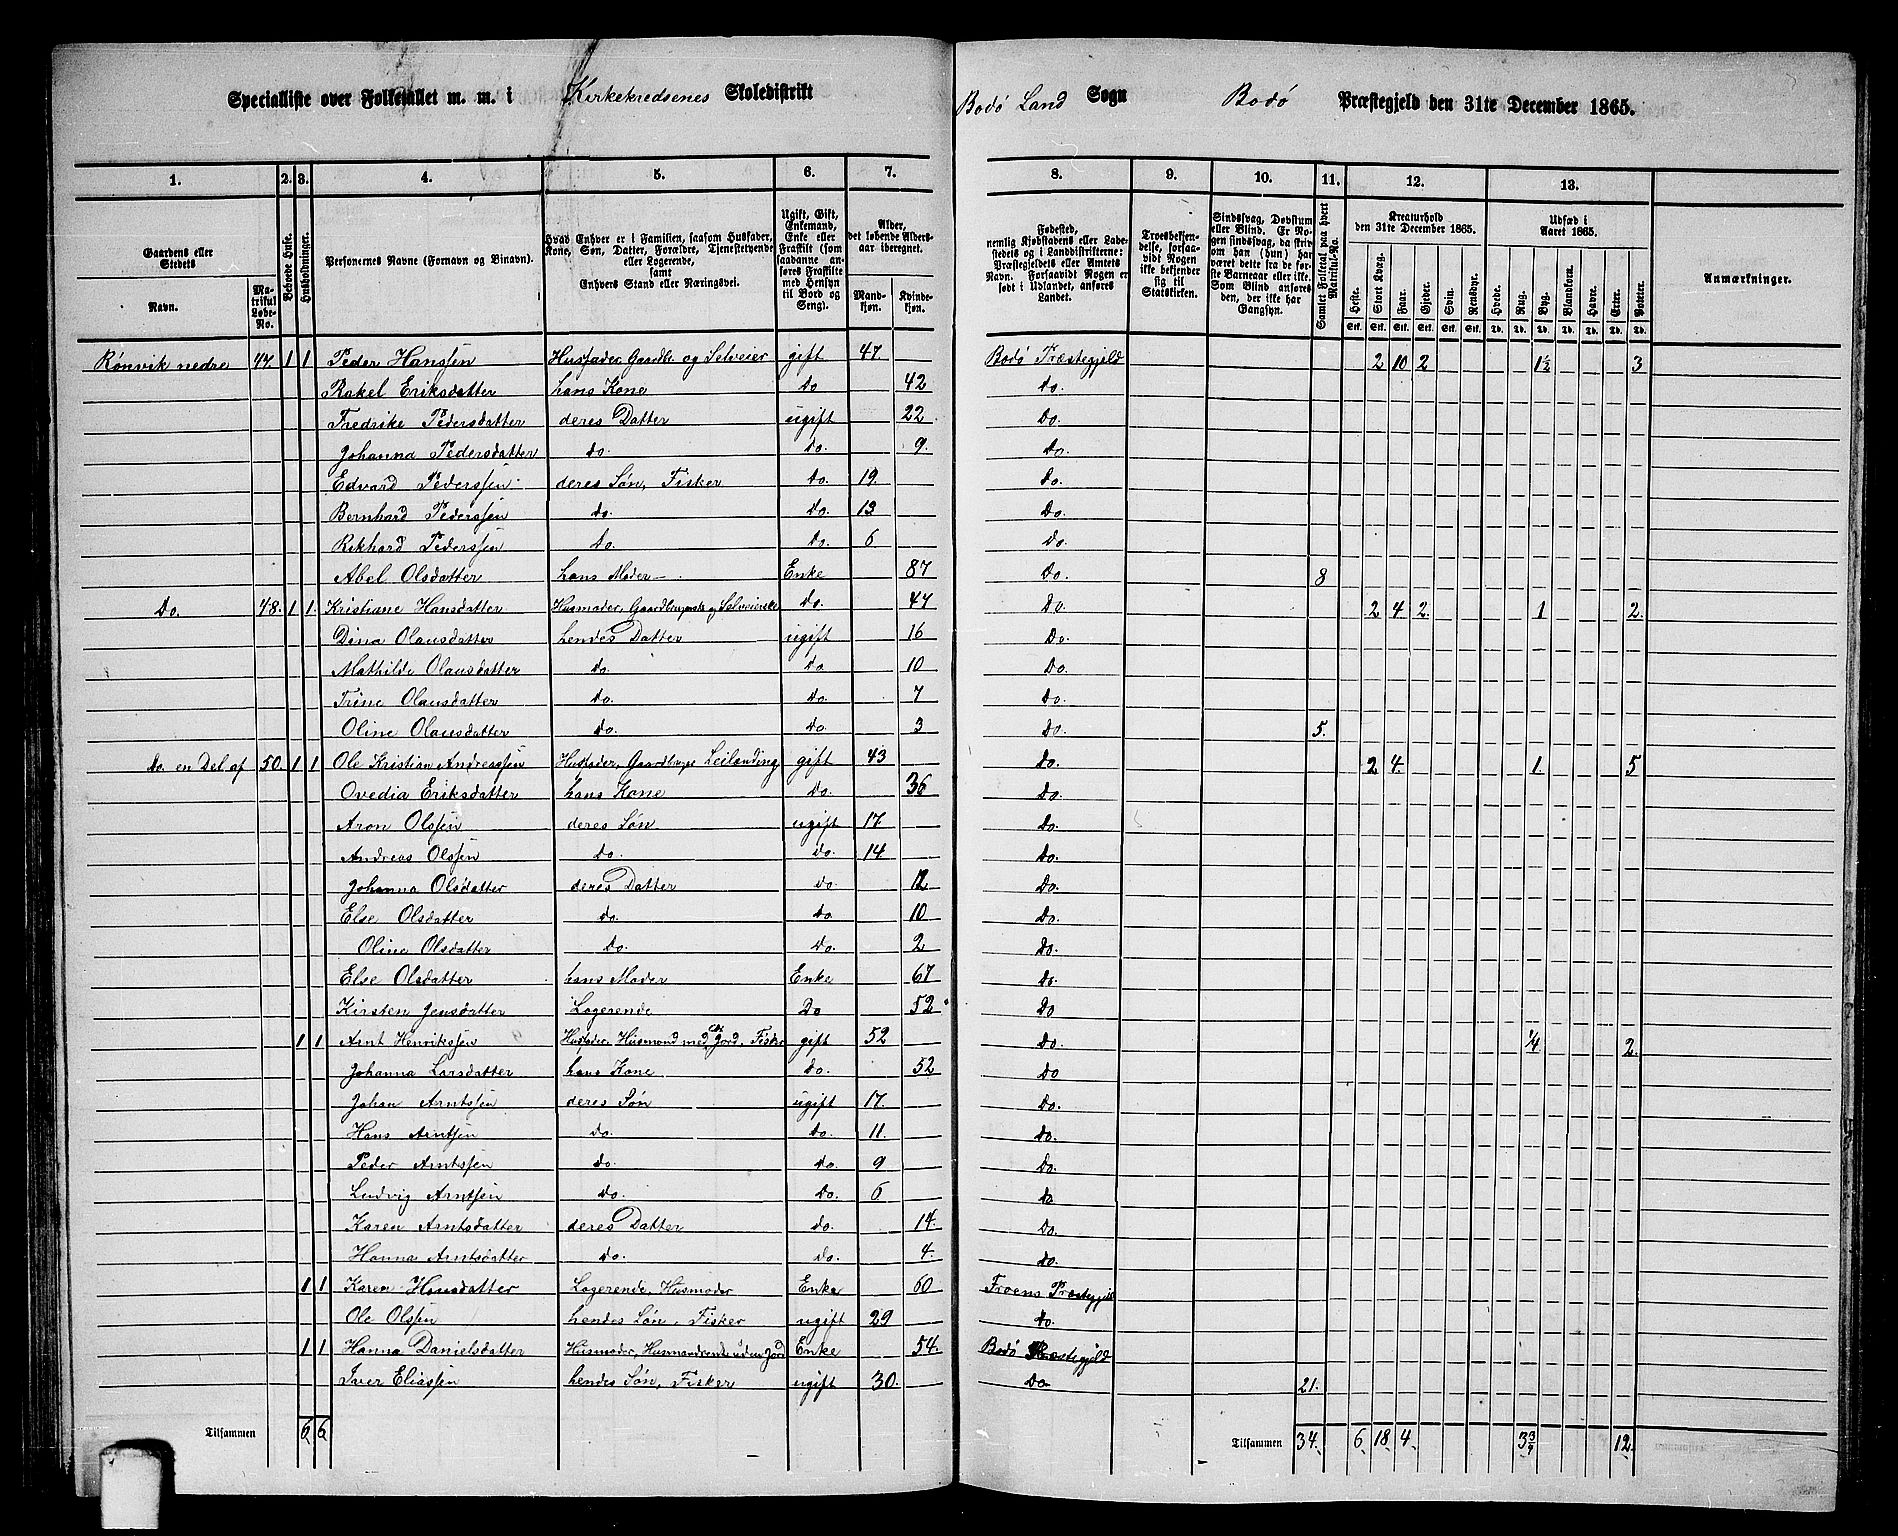 Specialliste over Folketallet m. m. i Kirkekredsenes Skoledistrikt Bodø Land Sogn Bodø Præstegjeld den 31te December 1865.
1. 2. 3. 4. 5. 6. 7. 8. 9. 10. 11. 12. 13.
Gaardens eller Stedets
Navn.
Matrikul Løbe-No.
Beboede Huse.
Husholdninger.
Personernes Navne (Fornavn og Binavn).
Hvad Enhver er i Familien, saasom Husfader, Kone, Søn, Datter, Forældre, Tjenestetyende eller Logerende, samt Enhvers Stand eller Næringsvei.
Ugift, Gift, Enkemand, Enke eller Fraskilt (som saadanne anføres Fraskilte med Hensyn til Bord og Seng).
Alder, det løbende Aldersaar iberegnet.
Mandkjøn. Kvindekjøn.
Fødested, nemlig Kjøbstadens eller Ladestedets og i Landdistrikterne: Præstegjeldets eller Amtets Navn. Forsaavidt Nogen er født i Udlandet, anføres Landet.
Troesbekjendelse, forsaavidt Nogen ikke bekjender sig til Statskirken.
Sindssvag, Døvstum eller Blind. Er Nogen sindssvag, da skrives om han (hun) har været dette fra de første Barneaar eller ikke. Som Blind anføres den, der ikke har Gangsyn.
Samlet Folketal paa hvert Matrikul-No.
Kreaturhold den 31te December 1865.
Heste. Stort Kvæg. Faar. Gjeder. Svin. Rensdyr.
Udsæd i Aaret 1865.
Hvede. Rug. Byg. Blandkorn. Havre. Erter. Poteter.
Anmærkninger.
Rønvik nedre 47. 1 1 Peder Hanssen Husfader, Gaardbr. og Selveier gift 47 Bodø Præstegjeld 2 10 2 1½ 3
Rakel Eriksdatter hans Kone Do 42 Do.
Fredrike Pedersdatter deres Datter ugift 22. Do.
Johanna Pedersdatter do. Do. 9. Do.
Edvard Pederssen deres Søn, Fisker Do. 19. Do.
Bernhard Pederssen Do. Do. 13 Do.
Rikhard Pederssen Do. Do. 6 Do.
Abel Olsdatter hans Moder Enke 87 Do. 8
Do. 48. 1 1. Kristiane Hansdatter Husmoder, Gaardbrugerske og Selveierske Do. 47 Do 2 4 2. 1 2.
Dina Olausdatter hendes Datter ugift 16 Do.
Mathilde Olausdatter Do. Do. 10 Do.
Trine Olausdatter Do. Do. 7 Do.
Oline Olausdatter Do. Do. 3 Do. 5.
Do. en Del af 50. 1 1 Ole Kristian Andreassen Husfader, Gaardbruger Leilending gift 43 Do. 2 4. 1. 5
Ovedia Eriksdatter hans Kone Do. 36 Do.
Aron Olssen deres Søn. ugift 17. Do.
Andreas Olssen Do. Do. 14. Do.
Johanna Olsdatter deres Datter Do. 12 Do.
Else Olsdatter Do. Do. 10 Do.
Oline Olsdatter Do. Do. 2 Do.
Else Olsdatter hans Moder Enke 67 Do.
Kirsten Jensdatter Logerende Do 52 Do
1 1 Arnt Henrikssen Husfader, Husmand med Jord, Fisker gift 52 Do. ¼ 2.
Johanna Larsdatter hans Kone Do. 52 Do
Johan Arntssen deres Søn ugift 17. Do.
Hans Arntssen Do. Do. 11. Do.
Peder Arntssen Do. Do. 9 Do.
Ludvig Arntssen Do. Do. 6 Do
Karen Arntsdatter deres Datter Do. 14. Do.
Hanna Arntsdatter Do. Do. 4. Do.
1 1 Karen Hansdatter Logerende, Husmoder Enke 60 Præstegjeld
Ole Olssen hendes Søn, Fisker ugift 29 Do.
1 1 Hanna Danielsdatter Husmoder, uden Jord Enke 54. Bodø Præstegjeld
Iver Eliassen hendes Søn, Fisker ugift 30. Do. 21.
Tilsammen 6. 6. Tilsammen 34. 6. 18. 4. 12.